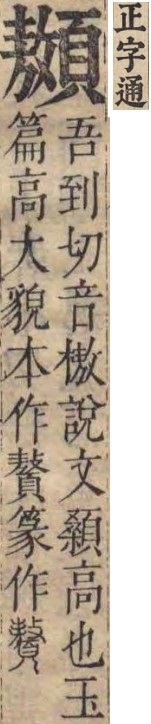 正字通
䫨
吾到切音檄說文高也玉
篇高大貌本作贅篆作